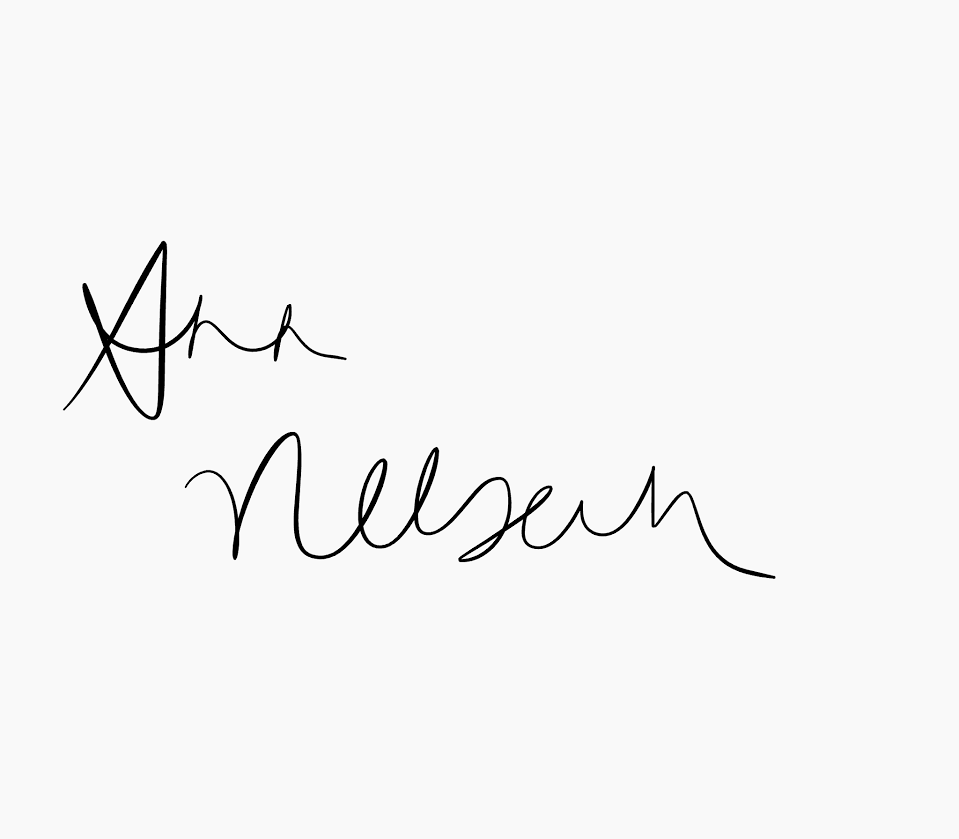 Ann
Nelsen